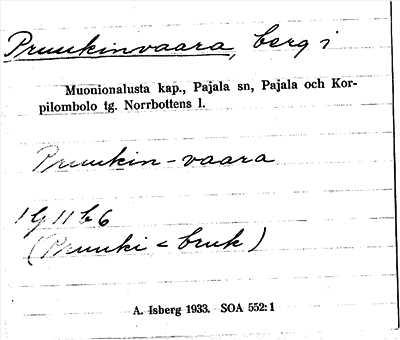 Pruukinvaara, berg i
Muonionalusta kap., Pajala sn, Pajala och Kor-
pilombolo tg. Norrbottens l.
Pruukin-vaara
19 11 b 6
(Pruuki = bruk)
A. Isberg 1933. SOA 552:1